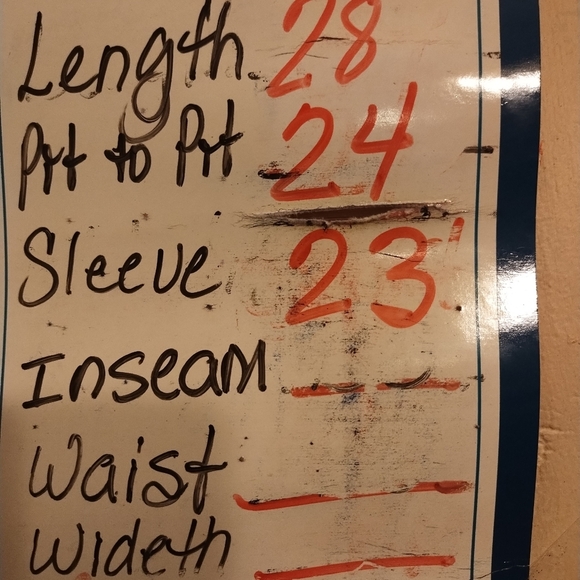 Length 28
Pit to Pit 24
Sleeve 23
Inseam
Waist
Wideth